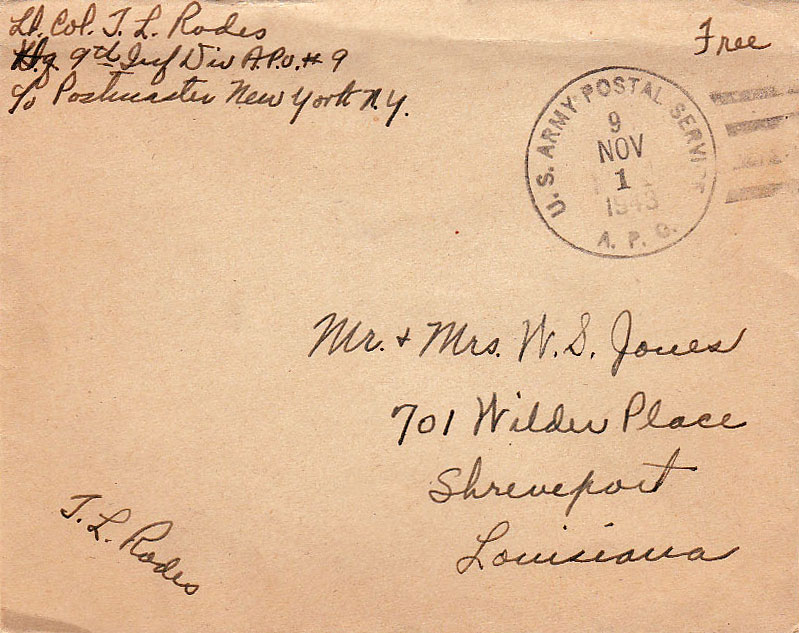 Lt. Col. T. L. Rodes
Hq. 9th Inf Div A.P.O. # 9
c/o Postmaster New York N.Y.
Free
U.S. ARMY POSTAL SERVICE
9
NOV
1
1943
A. P. O.
Mr. + Mrs. W. S. Jones
701 Wilder Place
Shreveport
Louisiana
T. L. Rodes